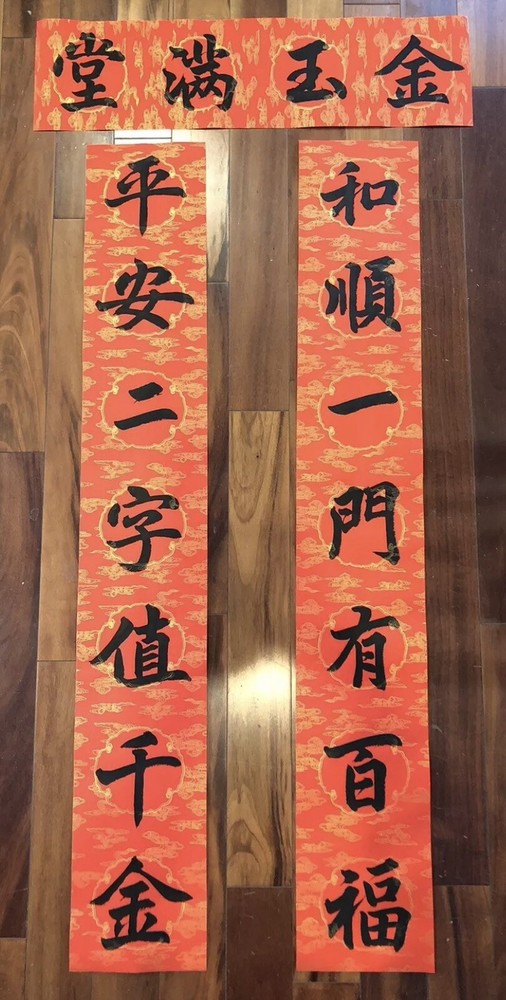 金玉滿堂
和順一門有百福
平安二字值千金